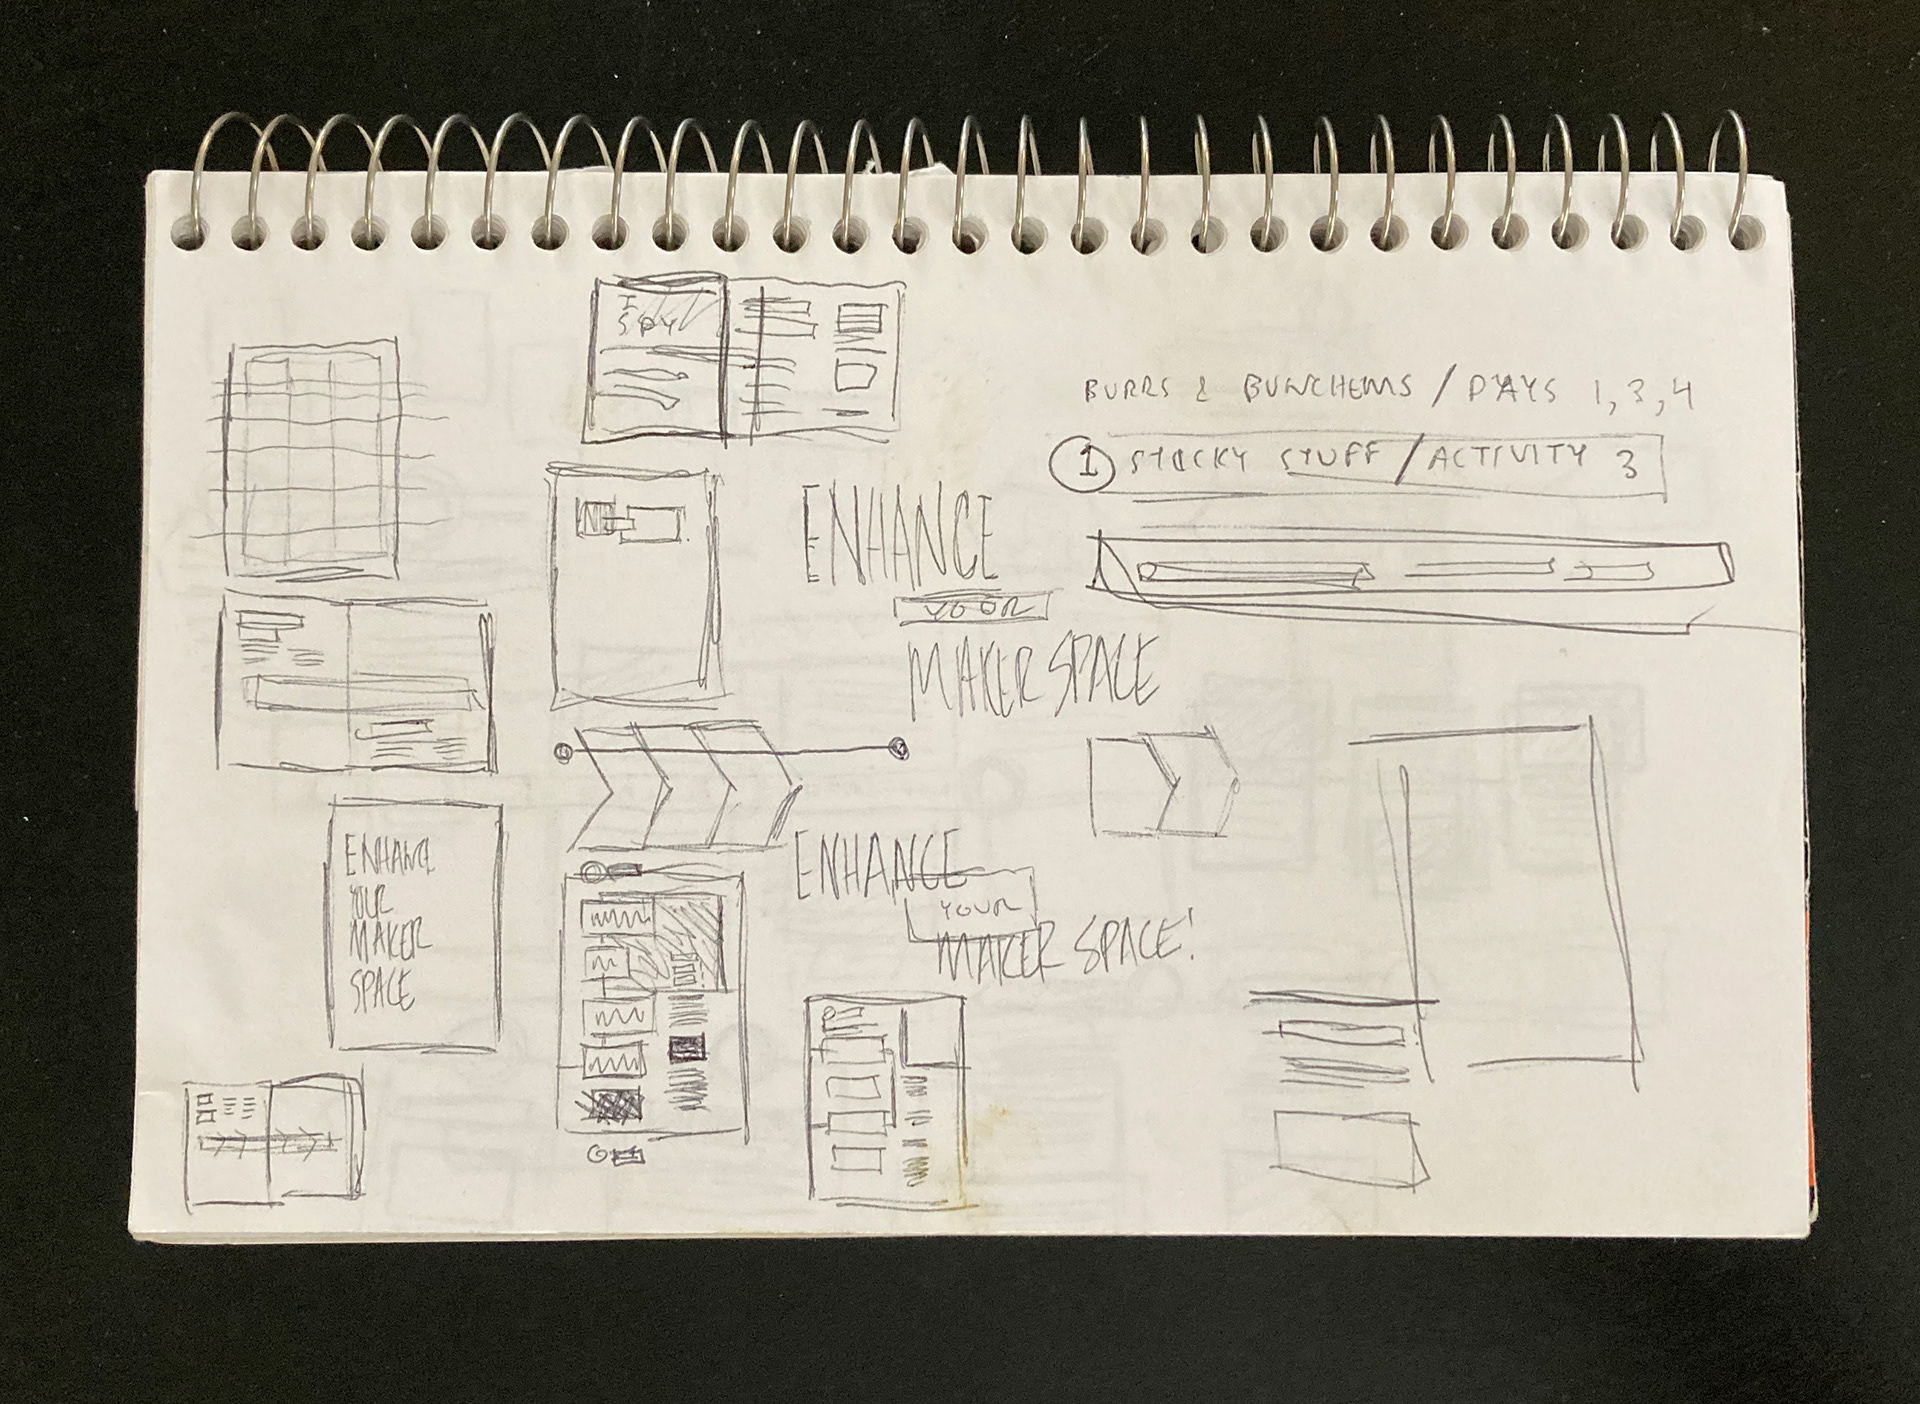 I
SPY
BURRS & BUNCHEMS / DAYS 1, 3, 4
1 STICKY STUFF / ACTIVITY 3
ENHANCE
YOUR
MAKER SPACE
ENHANCE
YOUR
MAKER
SPACE
ENHANCE
YOUR
MAKER SPACE!